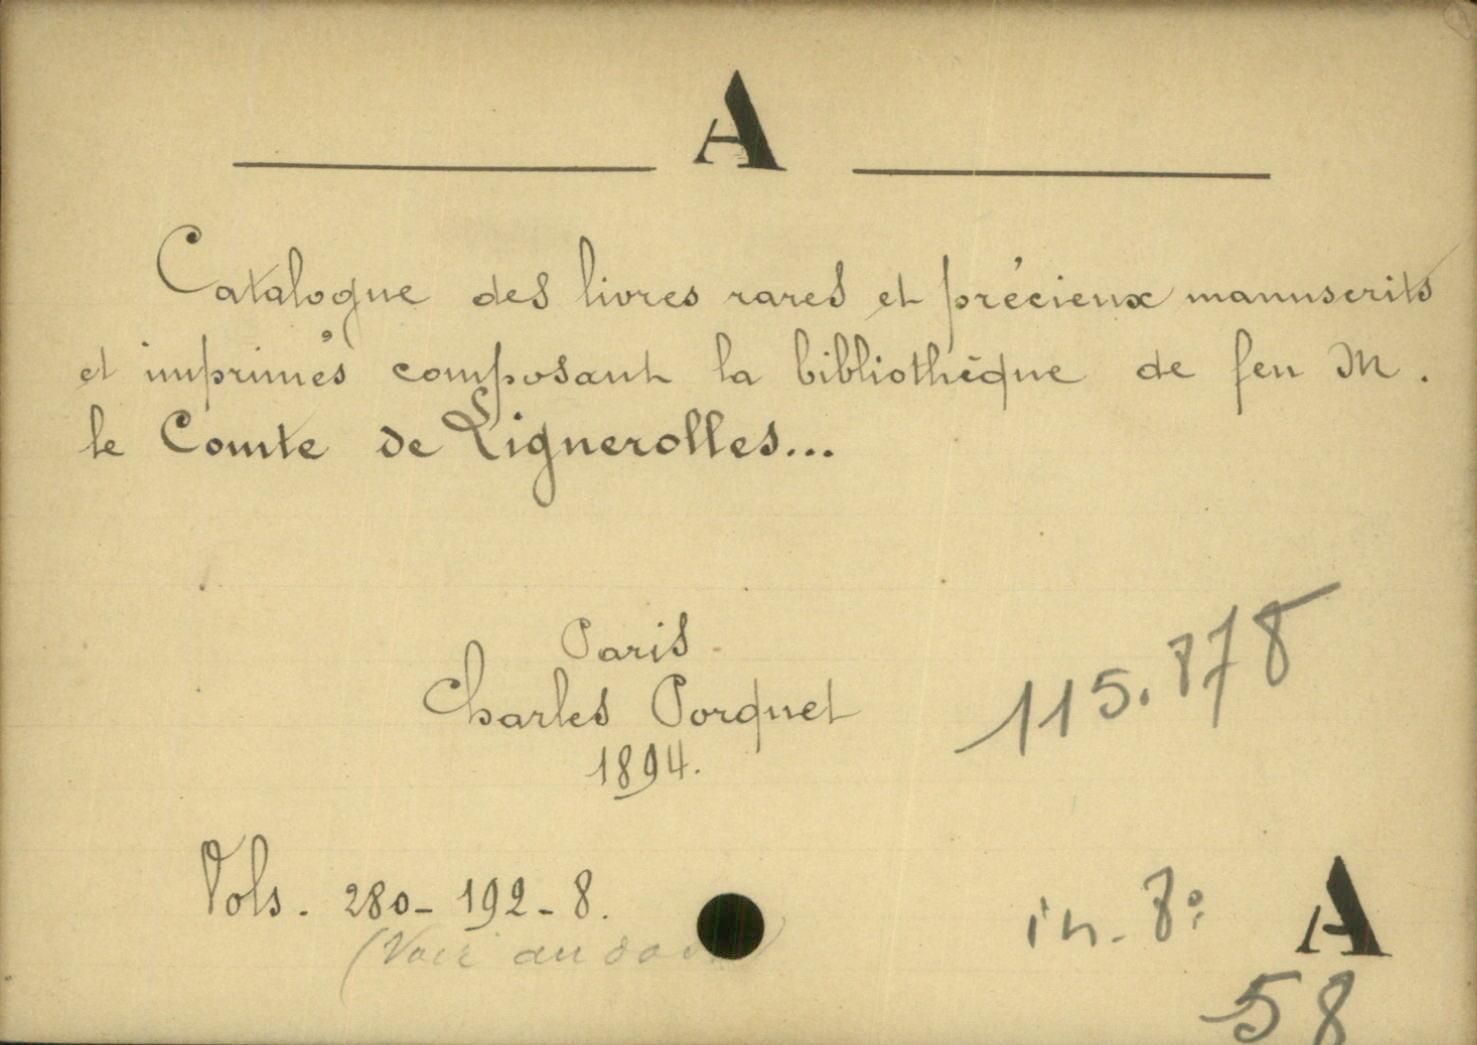 A
Catalogue des livres rares et précieux manuscrits
et imprimés composant la bibliothèque de feu M.
le Comte de Lignerolles...
Paris
Charles Porquet
1894.
115.878
Vols. 280-192-8.
(Voir au dos
in-8°
A
58